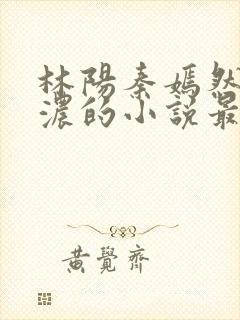 林陽秦嫣然
濃的小說最
黃覺齊